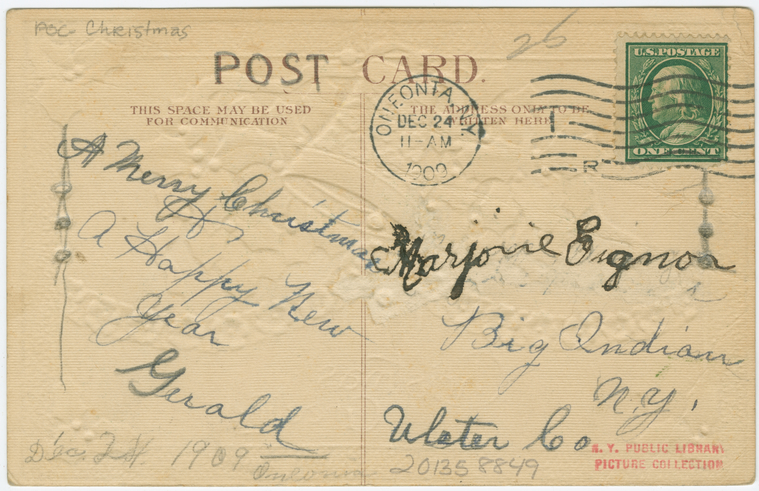 POC Christmas
25
POST CARD.
THIS SPACE MAY BE USED
FOR COMMUNICATION
THE ADDRESS ONLY TO BE
WRITTEN HERE
U.S. POSTAGE
ONE CENT
ONEONTA, N.Y.
DEC 24
11-AM
1909
R
A Merry Christmas
&
A Happy New
Year
Gerald
Marjorie Eignor
Big Indian
N.Y.
Ulster Co
Dec. 24. 1909
Oneonta
20135 8849
N. Y. PUBLIC LIBRARY
PICTURE COLLECTION